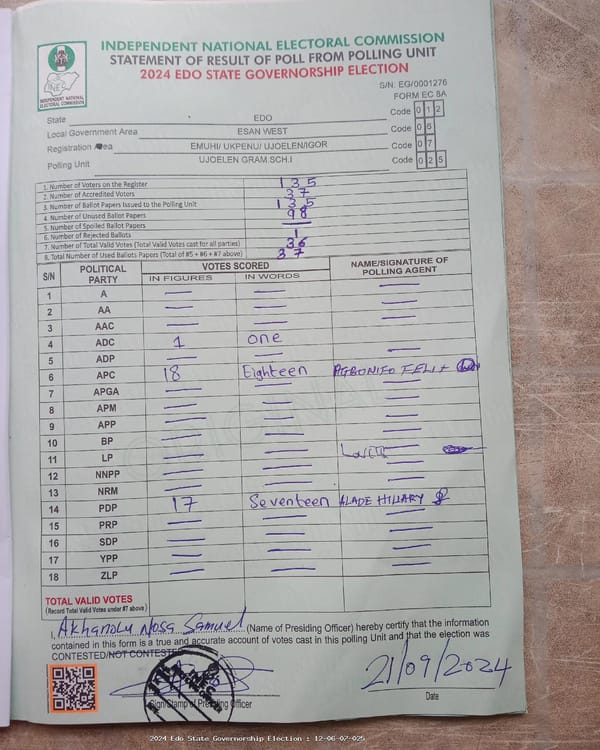 INDEPENDENT NATIONAL ELECTORAL COMMISSION
STATEMENT OF RESULT OF POLL FROM POLLING UNIT
2024 EDO STATE GOVERNORSHIP ELECTION
INDEPENDENT NATIONAL
ELECTORAL COMMISSION
S/N. EG/0001276
FORM EC 8A
State EDO Code 0 1 2
Local Government Area ESAN WEST Code 0 6
Registration Area EMUHI/ UKPENU/ UJOELEN/IGOR Code 0 7
Polling Unit UJOELEN GRAM.SCH.I Code 0 2 5
1. Number of Voters on the Register 135
2. Number of Accredited Voters 37
3. Number of Ballot Papers Issued to the Polling Unit 135
4. Number of Unused Ballot Papers 98
5. Number of Spoiled Ballot Papers —
6. Number of Rejected Ballots 1
7. Number of Total Valid Votes (Total Valid Votes cast for all parties) 36
8. Total Number of Used Ballots Papers (Total of #5 + #6 + #7 above) 37
S/N POLITICAL PARTY VOTES SCORED NAME/SIGNATURE OF POLLING AGENT
IN FIGURES IN WORDS
1 A — — —
2 AA — — —
3 AAC — — —
4 ADC 1 one
5 ADP — — —
6 APC 18 Eighteen AGBONIFO FELIX
7 APGA — — —
8 APM — — —
9 APP — — —
10 BP — — —
11 LP — —
12 NNPP — — —
13 NRM — — —
14 PDP 17 Seventeen ALADE HILLARY
15 PRP — — —
16 SDP — — —
17 YPP — — —
18 ZLP — — —
TOTAL VALID VOTES
(Record Total Valid Votes under #7 above)
I, Akhanolu Nosa Samuel (Name of Presiding Officer) hereby certify that the information
contained in this form is a true and accurate account of votes cast in this polling Unit and that the election was
CONTESTED/NOT CONTESTED
21/09/2024
Sign/Stamp of Presiding Officer
Date
2024 Edo State Governorship Election : 12-06-07-025